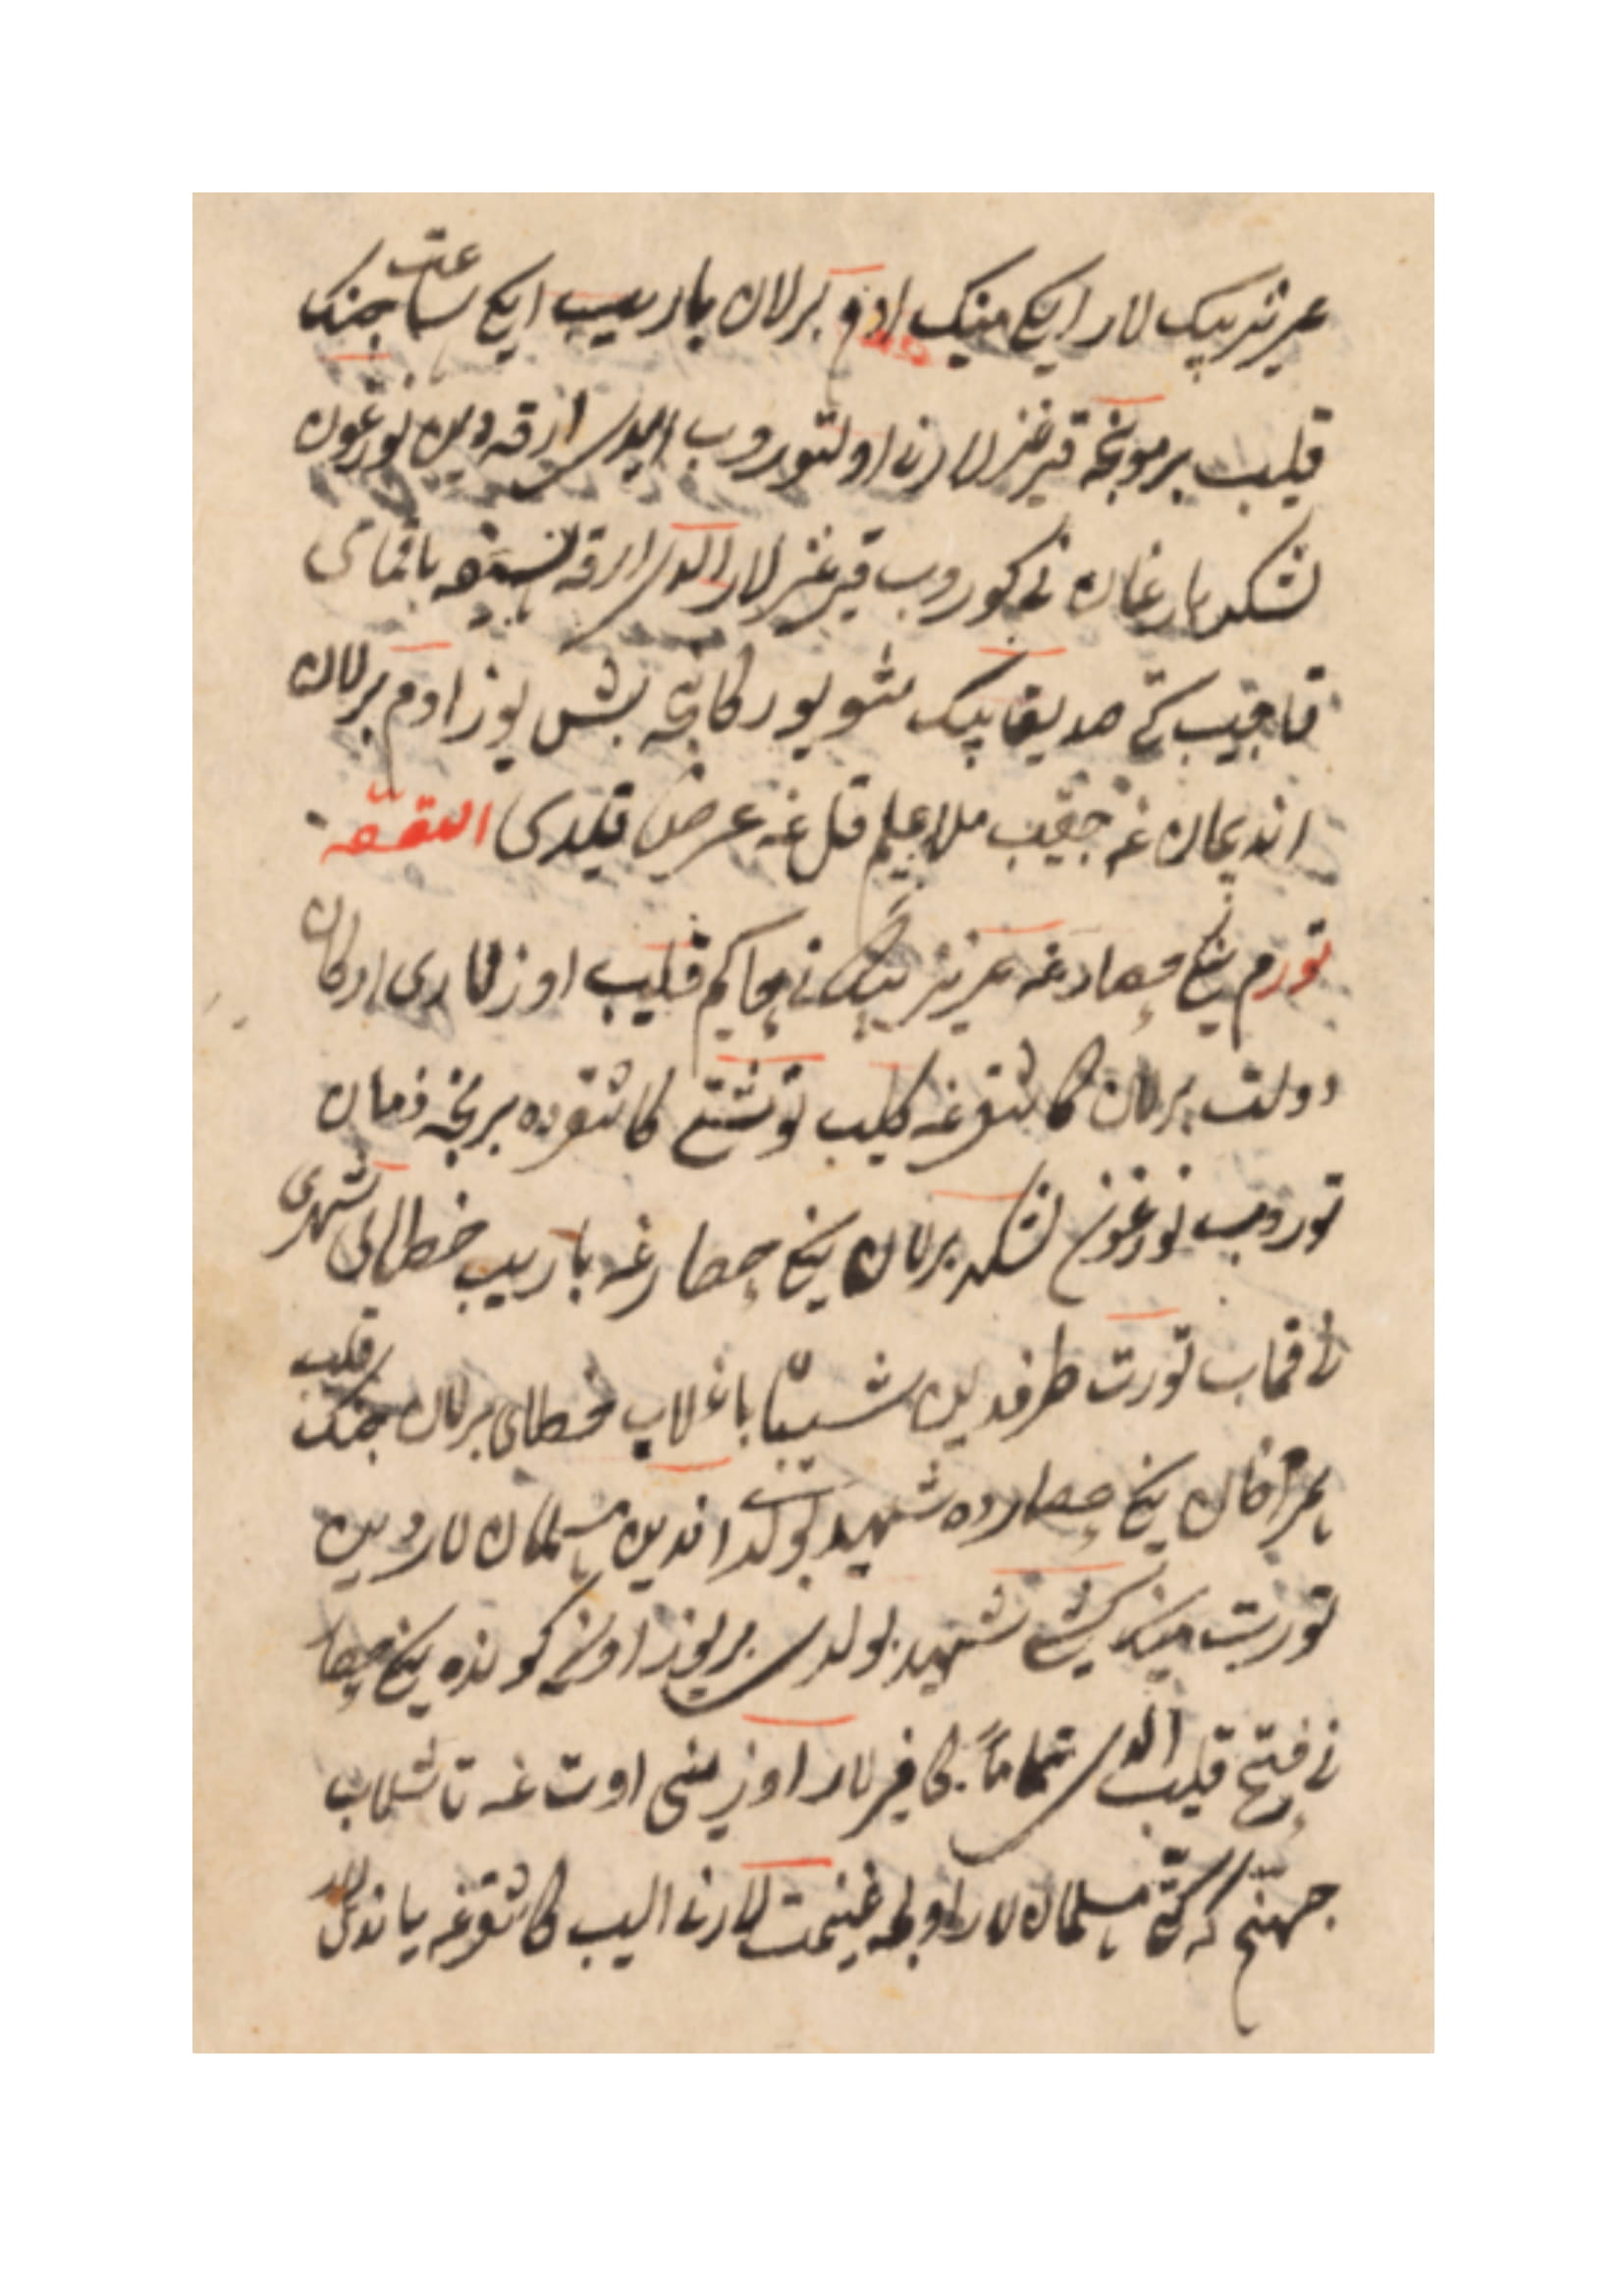 عزیز بیک لار ایکی مینک ادم برلان باریب ایکی ساعت جنک
قیلیب برمونچه قیرغیز لارنی اولتوروب ایردی ارقه دین نورغون
لشکر بارغان نی کوروب قیرغیز لار الدی ارقه سیغه باقمای
قاچیب کتی صدیقا بیک شو یورکانچه بش یوز ادم برلان
اندیجان غه چقیب ملا علم قل غه عرض قیلدی القصه
تورم ینکی حصارغه عزیز بیک نی حاکم قیلیب اوزلاری اوکان
دولت برلان کاشقرغه کلیب توشتی کاشقرده برنچه زمان
توروب نورغون لشکر برلان ینکی حصارغه باریب خطای شهری
نی قماب تورت طرفدین شیپا باغلاب خطای برلان جنک قیلیب
حصارده شهید بولدی اندین مسلمان لاردین
تورت مینک کشی شهید بولدی بر یوز اون کونده ینکی حصار
نی فتح قیلیب الدی تماماً کافر لار اوزینی اوت غه تاشلاب
جهنم که کتی مسلمان لار اولجه غنیمت لارنی الیب کاشقرغه یاندی لار